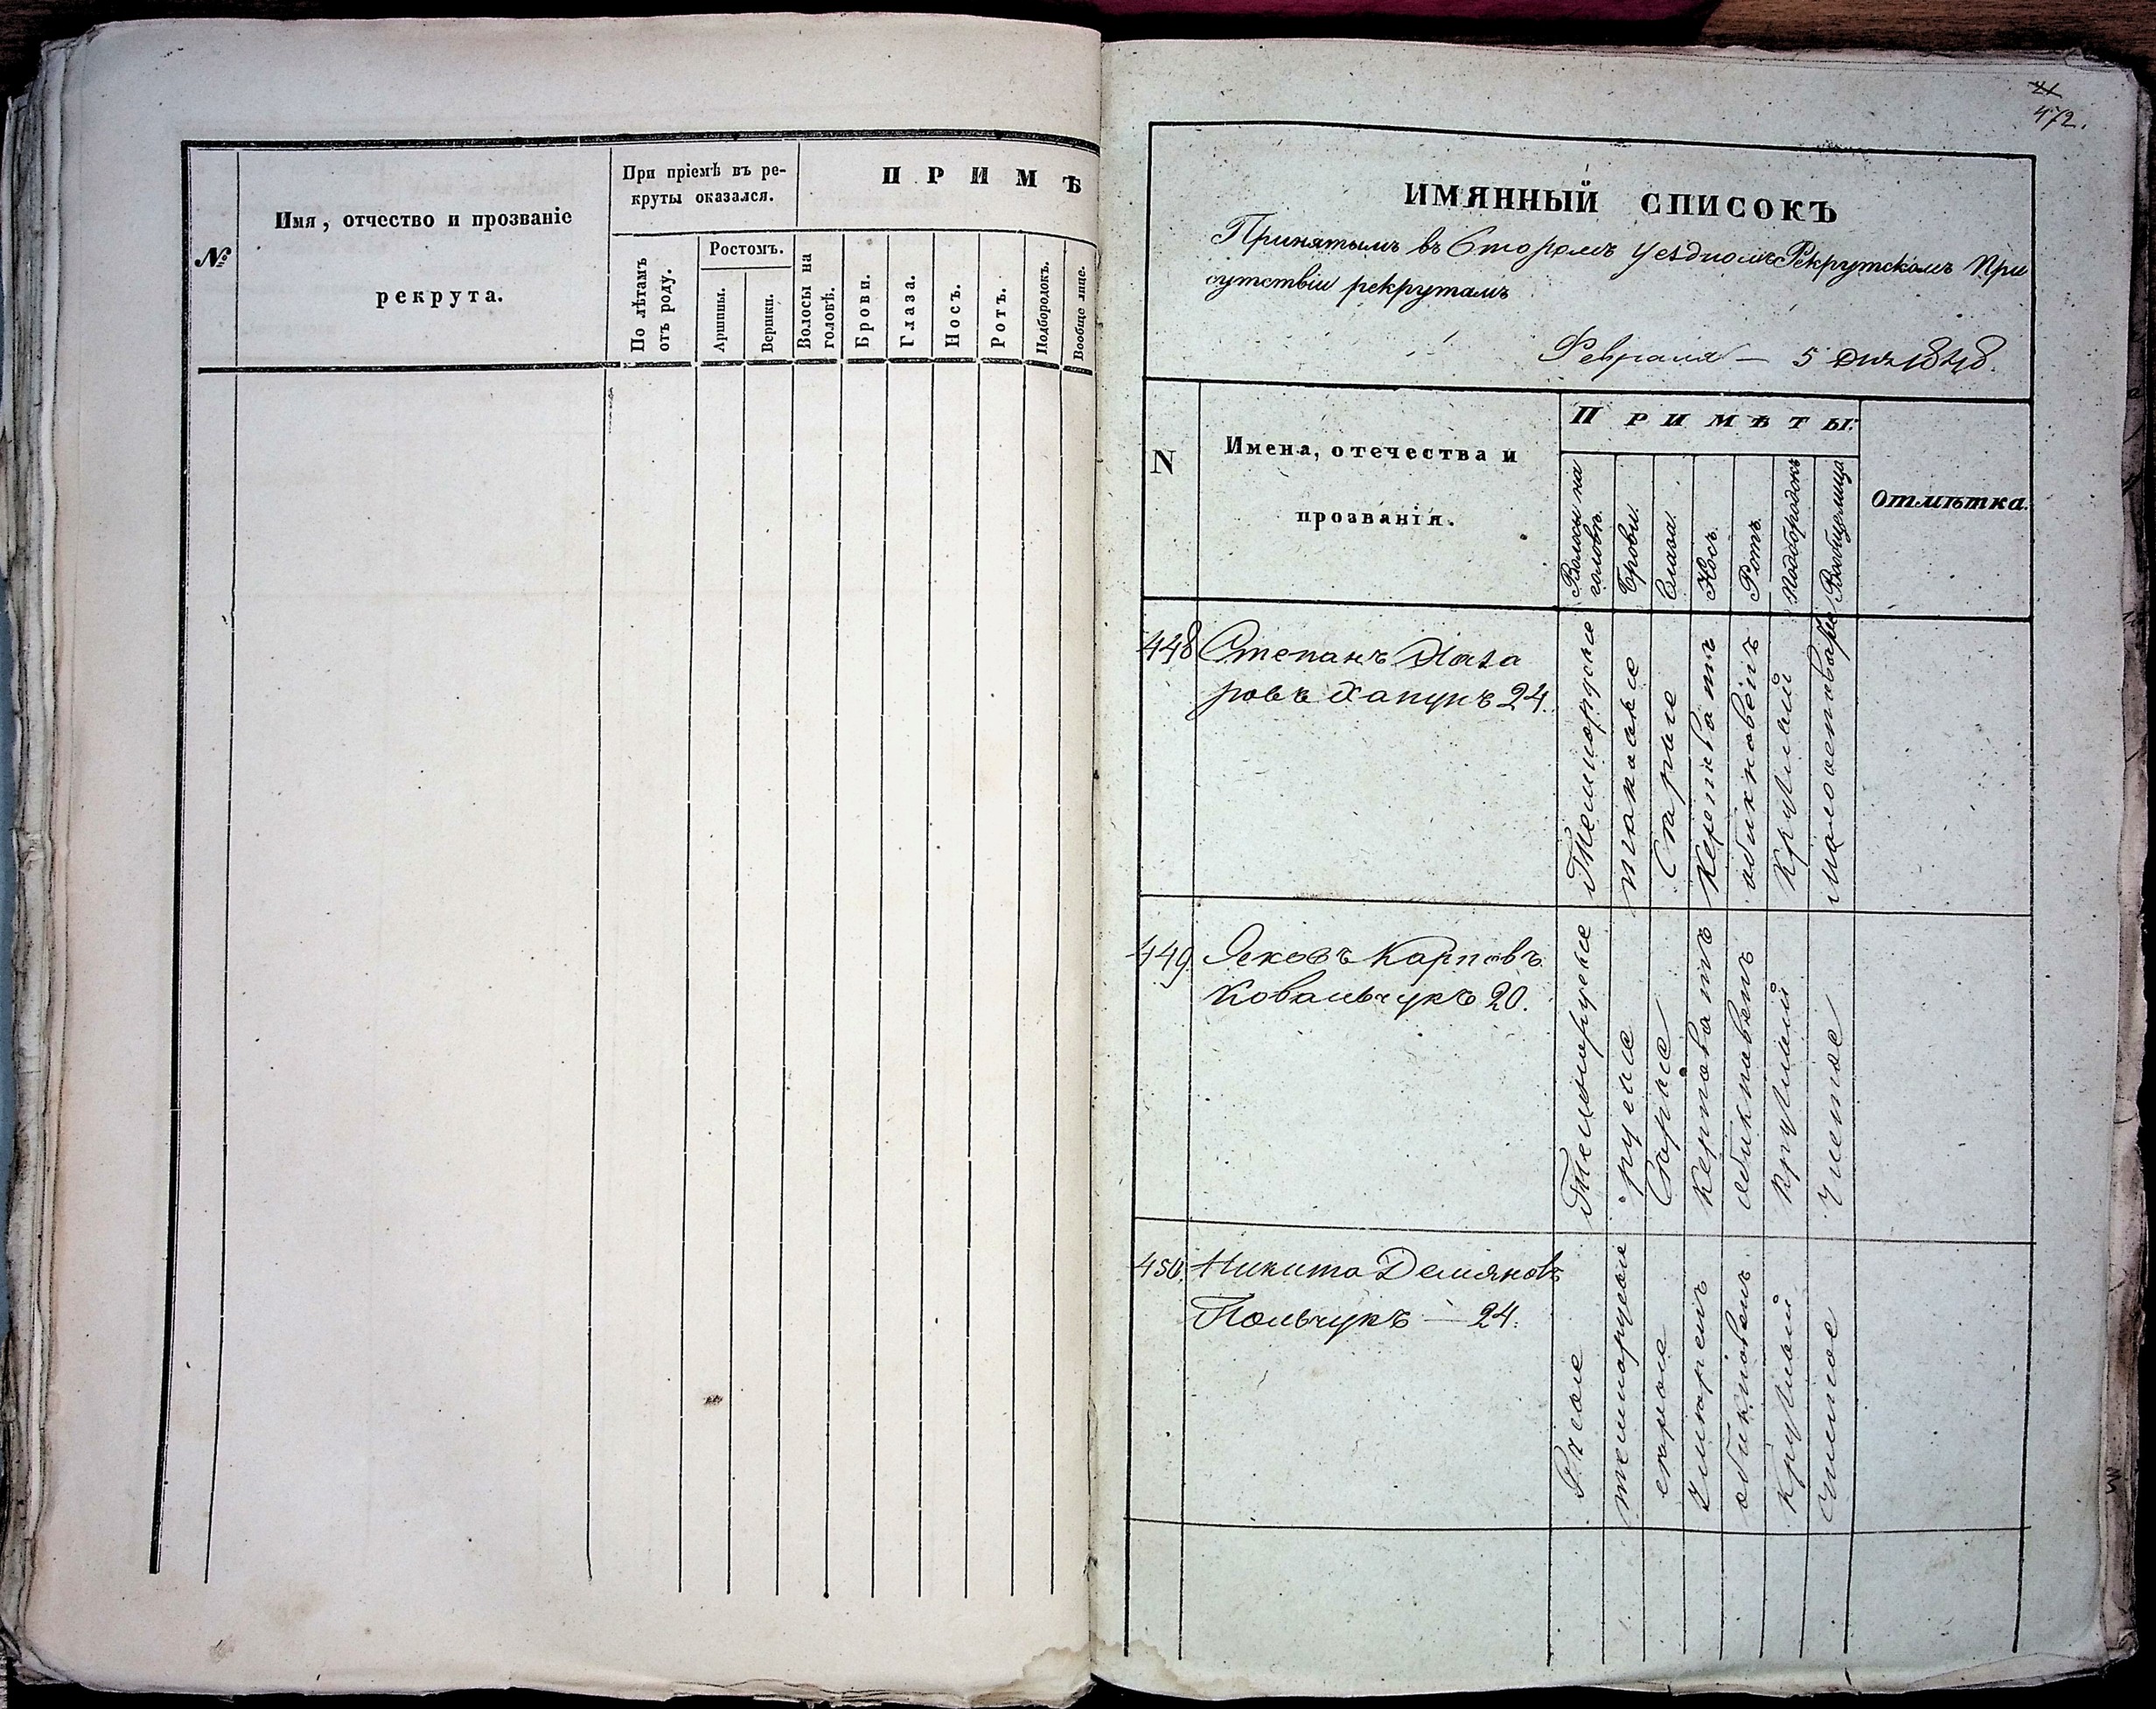 №
Имя, отчество и прозваніе
рекрута.
При пріемѣ въ ре-
круты оказался.
ПРИМѢ
По лѣтамъ
отъ роду.
Ростомъ.
Аршины.
Вершки.
Волосы на
головѣ.
Брови.
Глаза.
Носъ.
Ротъ.
Подбородокъ.
Вообще лице.
21
472.
ИМЯННЫЙ СПИСОКЪ
Принятымъ въ Второмъ Уездномъ Рекрутскомъ При
сутствіи рекрутамъ
Февраля — 5 дня 1848
N
Имена, отечества и
прозванія.
ПРИМѢТЫ:
Волосы на
головѣ
Брови
Глаза
Носъ
Ротъ
Подбородокъ
Вообще лица
Отмѣтка.
448
Степанъ Наза
ровъ Хапунъ 24.
Темнорусые
такые
Сѣрые
обикновенъ
Круглый
449.
Яковъ Карповъ
Ковальчукъ 20.
Темнорусые
русые
Сѣрые
обикновенъ
Круглый
Чистое
450.
Никита Демяновъ
Польчукъ — 24.
Русые
темнорусые
сѣрые
Умѣренъ
обикновенъ
Круглый
Чистое